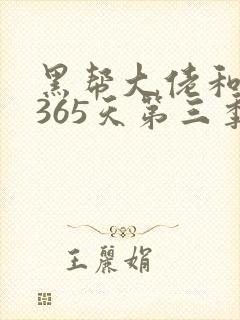 黑帮大佬和
365天第三季
王麗娟